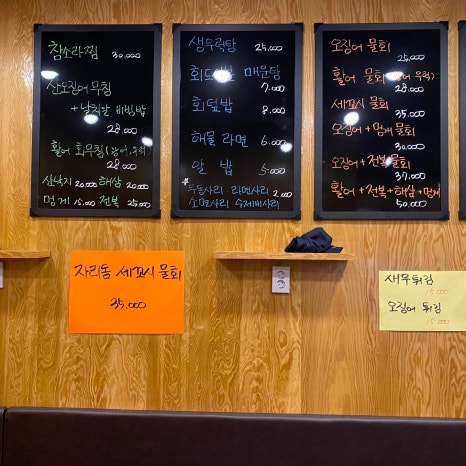 참소라찜 30,000
산오징어무침
+ 날치알 비빔밥
28,000
활어 회무침(광어,우럭)
28,000
산낙지 20,000 해삼 20,000
멍게 15,000 전복 25,000
생우럭탕 25,000
회드신후 매운탕
7,000
회덮밥 8,000
해물 라면 6,000
알 밥 5,000
우동사리 라면사리 2,000
소면사리 수제비사리
오징어 물회
25,000
활어 물회(광어 우럭)
28,000
세꼬시 물회
35,000
오징어+멍게 물회
30,000
오징어+전복 물회
37,000
활어+전복+해삼+멍게
50,000
자리돔 세꼬시 물회
35,000
새우튀김
15,000
오징어 튀김
15,000